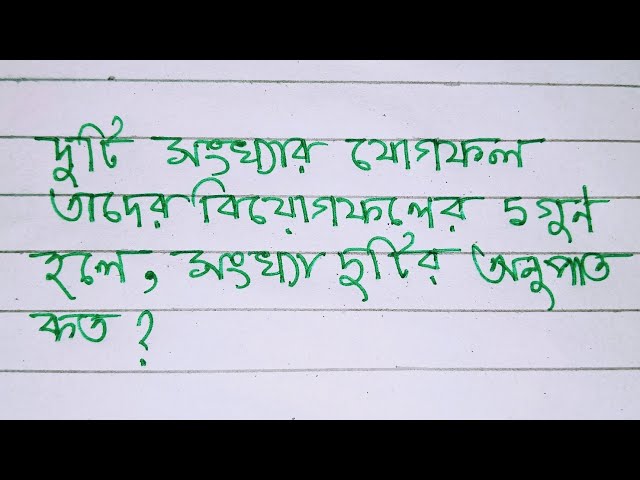 দুটি সংখ্যার যোগফল
তাদের বিয়োগফলের ৫ গুন
হলে, সংখ্যা দুটির অনুপাত
কত ?